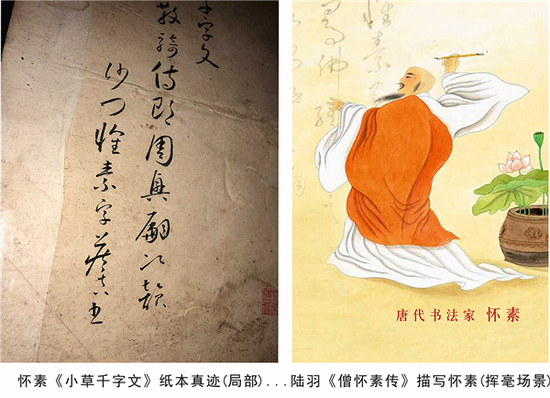 千字文
散騎侍郎周興嗣次韻
沙門懷素字藏真書
唐代书法家 怀素
怀素《小草千字文》纸本真迹(局部)...陆羽《僧怀素传》描写怀素(挥毫场景)